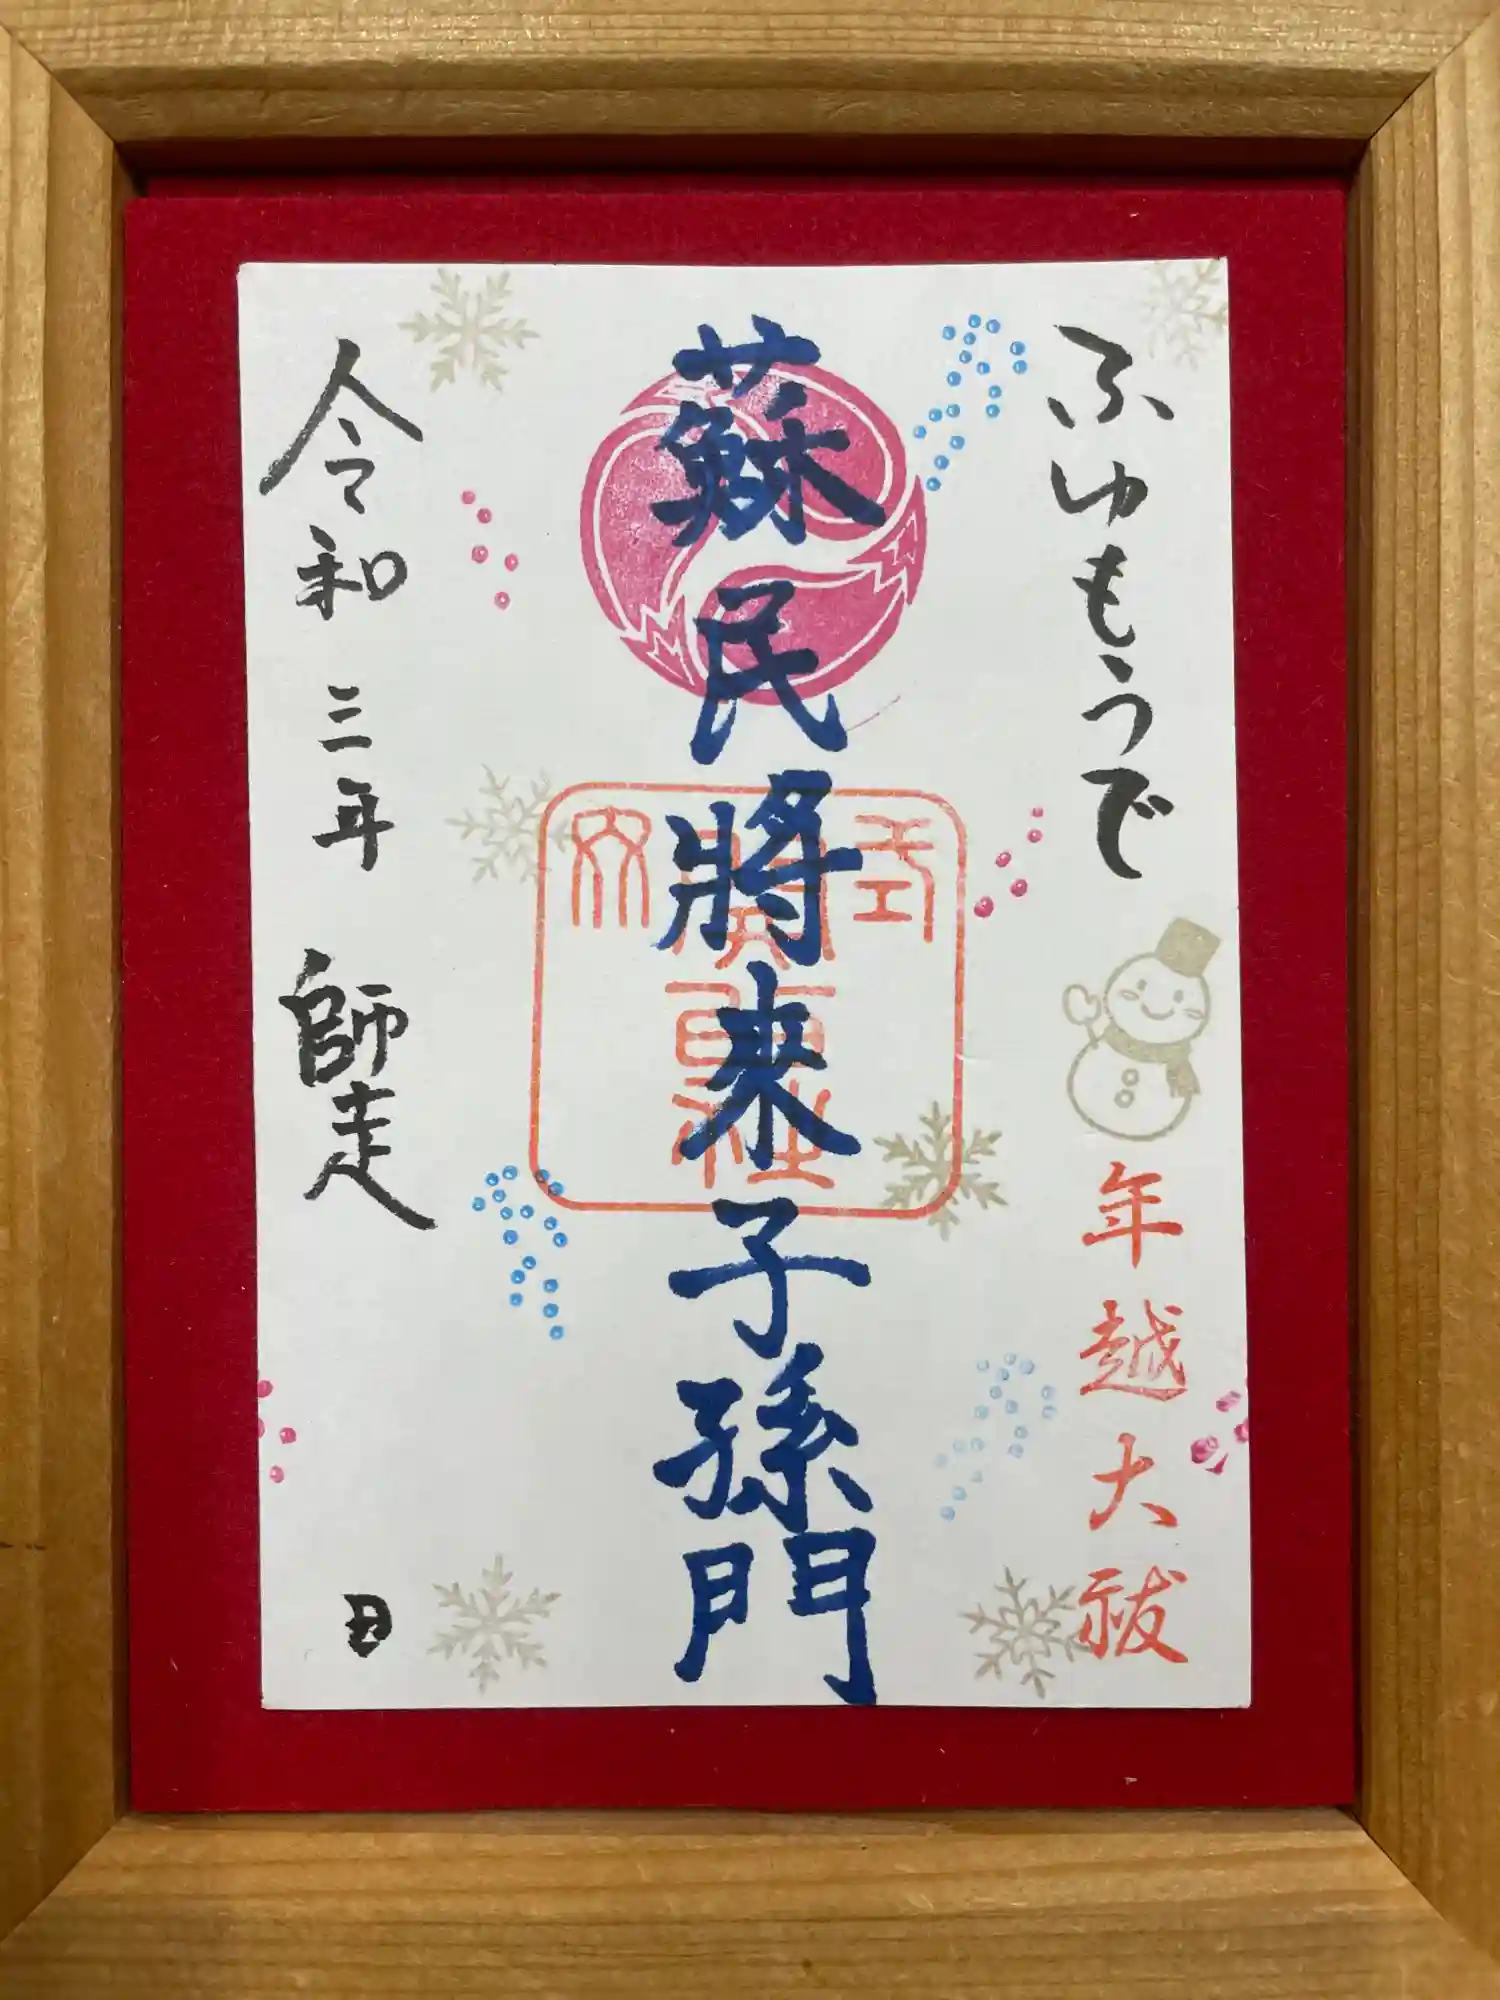 ふゆもうで
年越大祓
蘇民將来子孫門
令和三年 師走 日